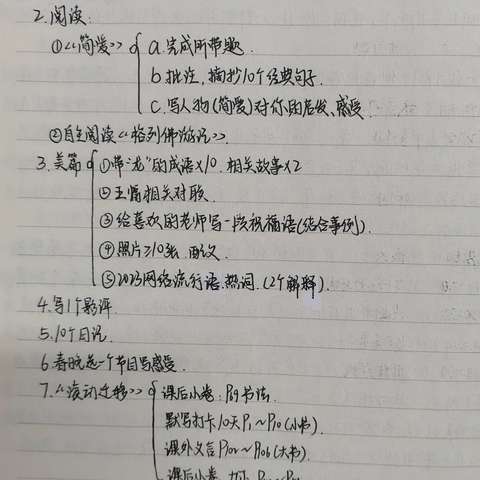 2.阅读:
①《简爱》 a.完成所带题.
b.批注,摘抄10个经典句子.
c.写人物(简爱)对你的启发、感受.
②自主阅读《格列佛游记》.
3.美篇 ①带"龙"的成语x10.相关故事x2
②王 相关对联
③给喜欢的老师写一段祝福语(结合事例).
④照片≥10张.
⑤2023网络流行语.热词.(2个解释).
4.写1个影评.
5.10个日记.
6.春晚选一个节目写感受.
7.《滚动迁移》 课后小卷:P89书法
默写打卡10天P1~P10(小书).
课外文言 ~ (大书).
课后小卷